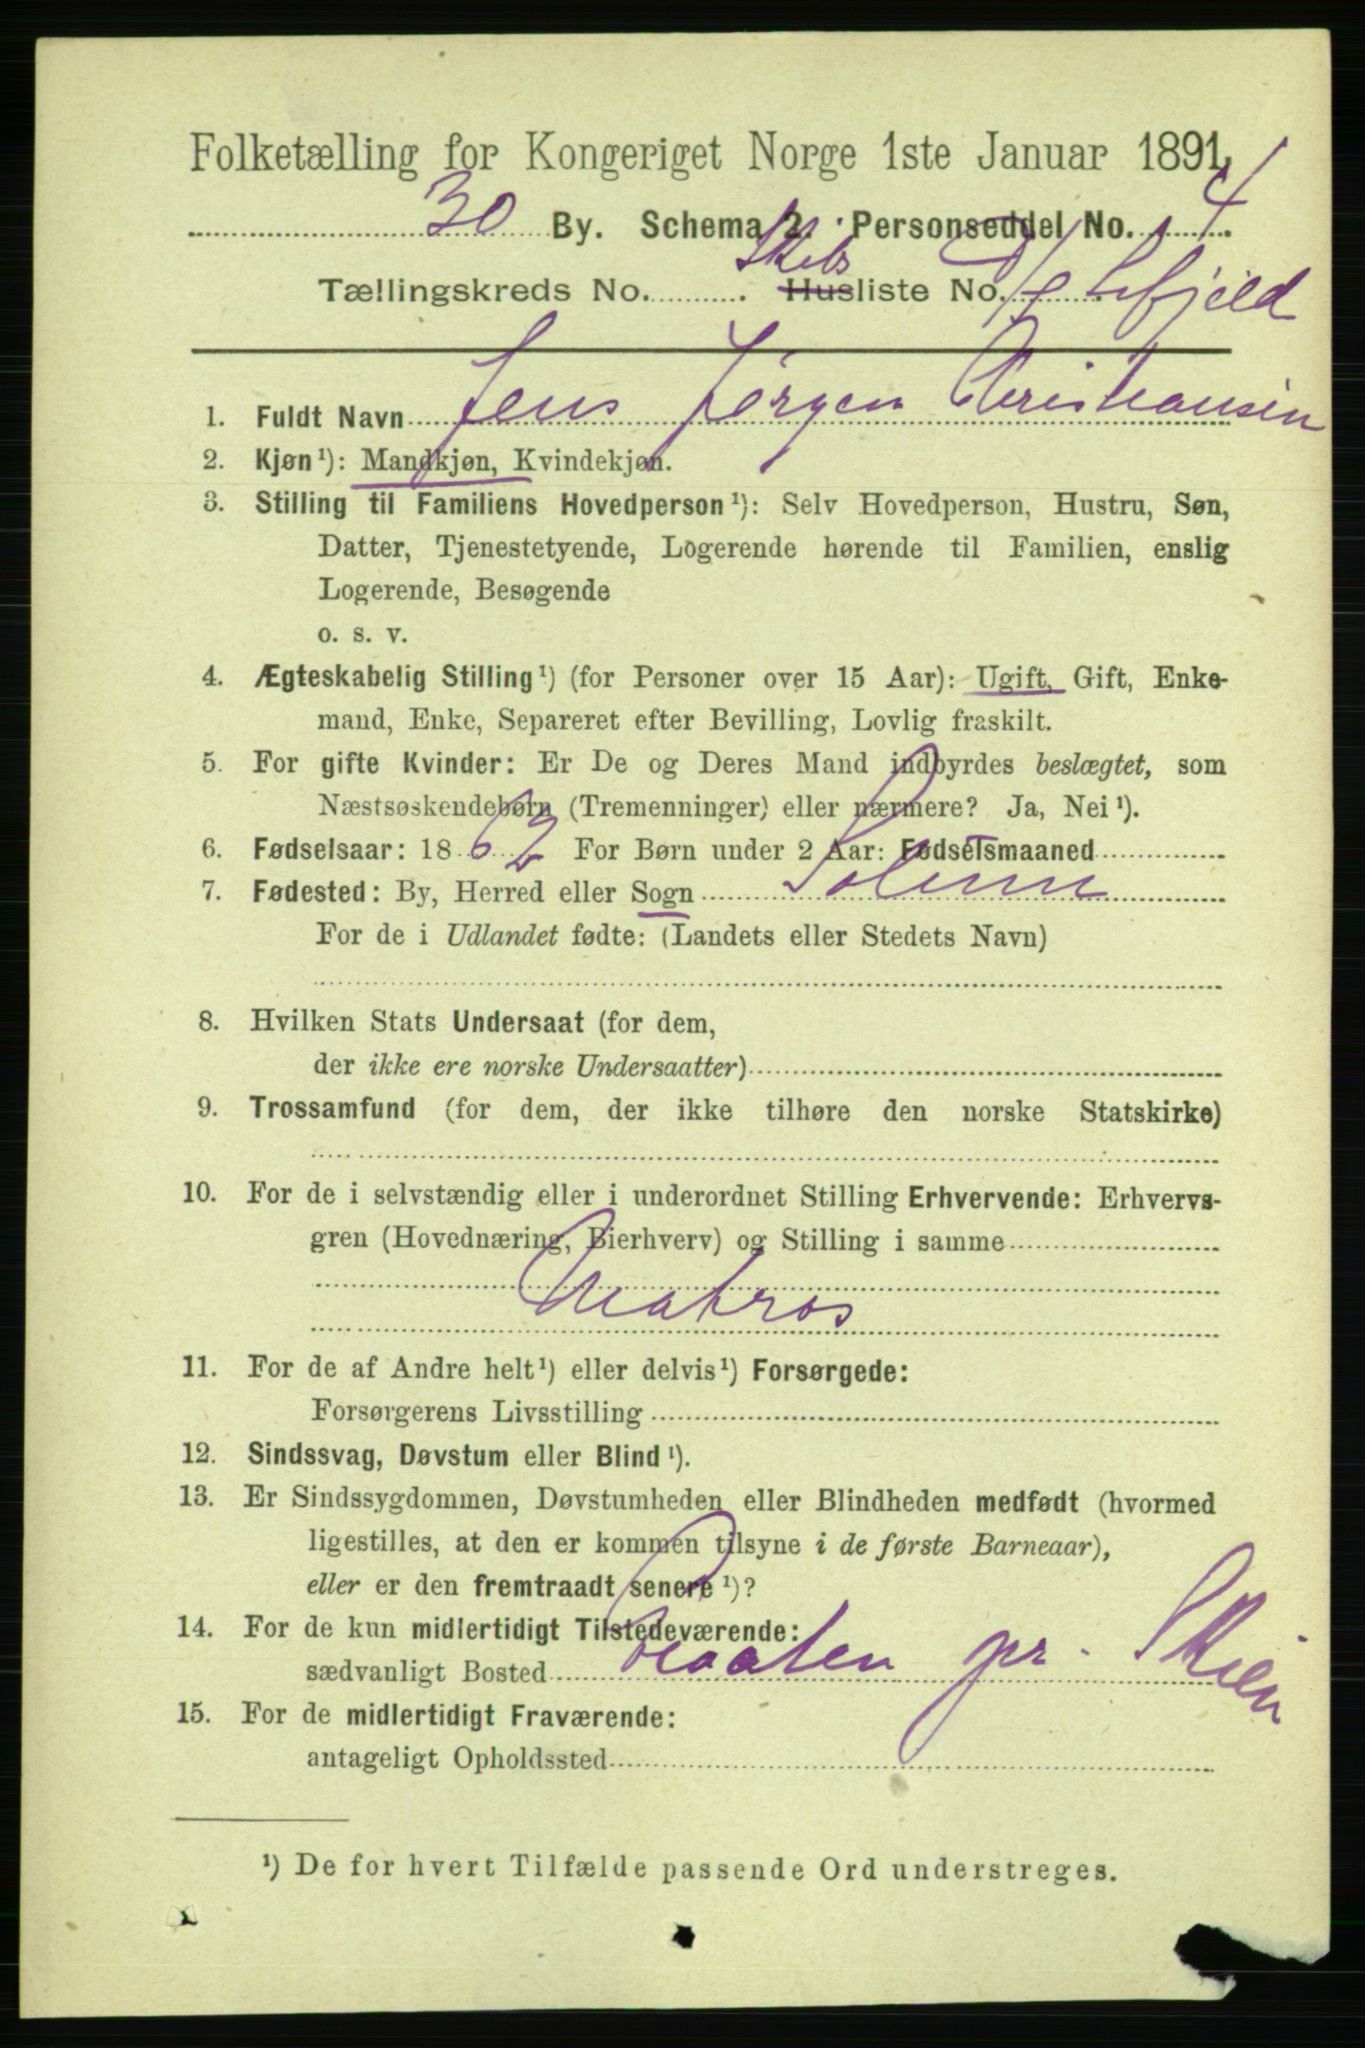 Folketælling for Kongeriget Norge 1ste Januar 1891.
30 By. Schema 2. Personseddel No. 4.
Tællingskreds No. . Husliste No. Skibs
1. Fuldt Navn Jens Jørgen Christiansen
2. Kjøn ¹): Mandkjøn, Kvindekjøn.
3. Stilling til Familiens Hovedperson ¹): Selv Hovedperson, Hustru, Søn,
Datter, Tjenestetyende, Logerende hørende til Familien, enslig
Logerende, Besøgende
o. s. v.
4. Ægteskabelig Stilling ¹) (for Personer over 15 Aar): Ugift, Gift, Enke-
mand, Enke, Separeret efter Bevilling, Lovlig fraskilt.
5. For gifte Kvinder: Er De og Deres Mand indbyrdes beslægtet, som
Næstsøskendebørn (Tremenninger) eller nærmere? Ja, Nei ¹).
6. Fødselsaar: 18 For Børn under 2 Aar: Fødselsmaaned
7. Fødested: By, Herred eller Sogn Solum
For de i Udlandet fødte: (Landets eller Stedets Navn)
8. Hvilken Stats Undersaat (for dem,
der ikke ere norske Undersaatter)
9. Trossamfund (for dem, der ikke tilhøre den norske Statskirke)
10. For de i selvstændig eller i underordnet Stilling Erhvervende: Erhvervs-
gren (Hovednæring, Bierhverv) og Stilling i samme
Matros
11. For de af Andre helt ¹) eller delvis ¹) Forsørgede:
Forsørgerens Livsstilling
12. Sindssvag, Døvstum eller Blind ¹).
13. Er Sindssygdommen, Døvstumheden eller Blindheden medfødt (hvormed
ligestilles, at den er kommen tilsyne i de første Barneaar),
eller er den fremtraadt senere ¹)?
14. For de kun midlertidigt Tilstedeværende:
sædvanligt Bosted pr. Skien
15. For de midlertidigt Fraværende:
antageligt Opholdssted
¹) De for hvert Tilfælde passende Ord understreges.